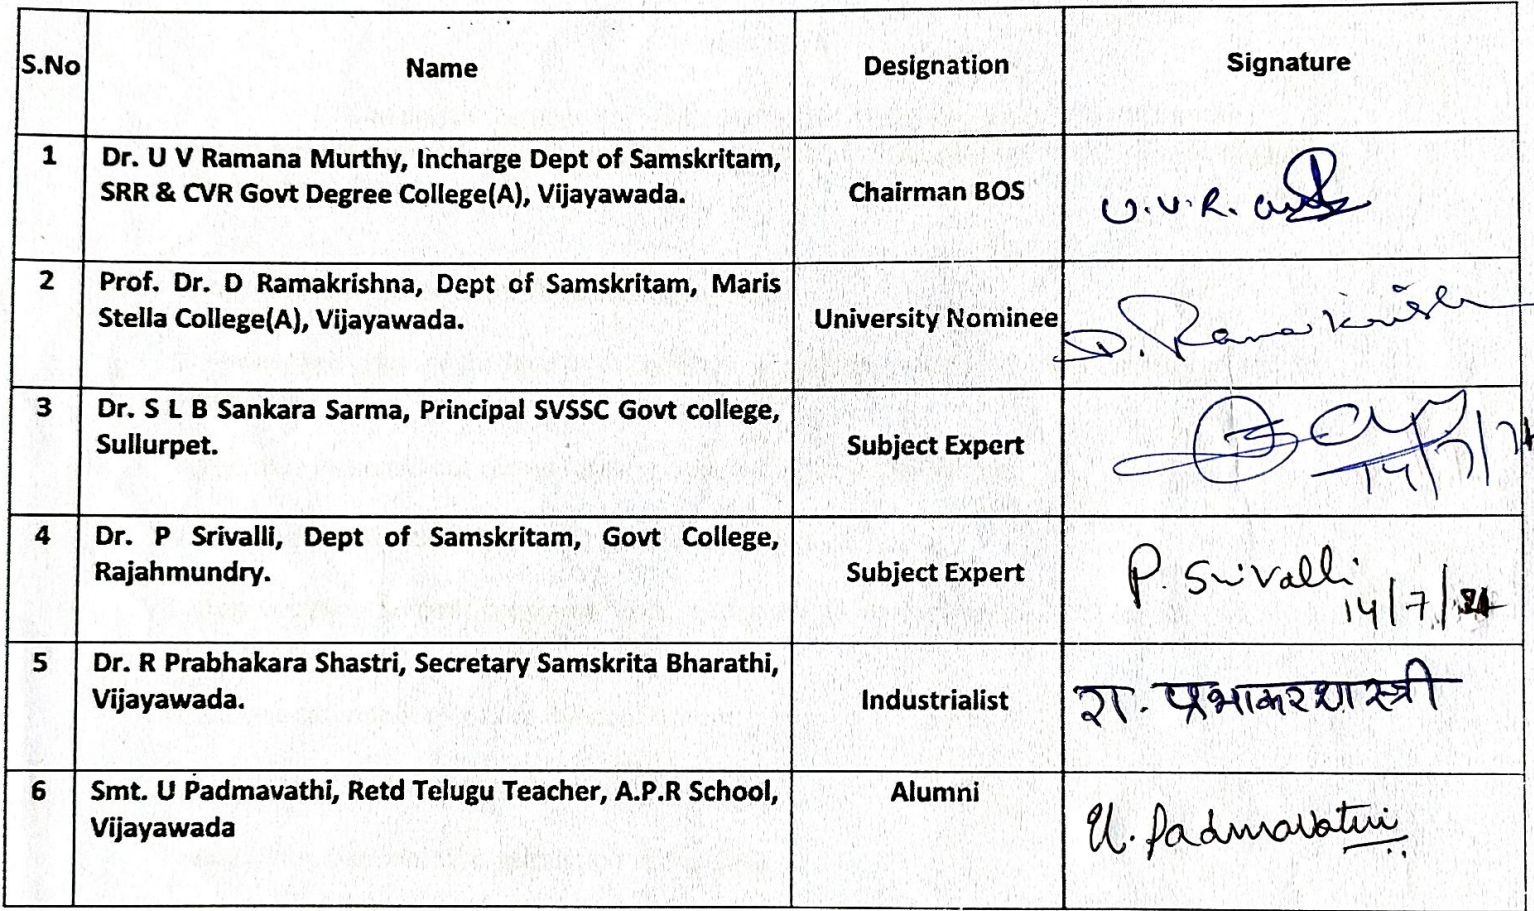 S.No Name Designation Signature
1 Dr. U V Ramana Murthy, Incharge Dept of Samskritam,
SRR & CVR Govt Degree College(A), Vijayawada.
Chairman BOS
U.V.R.
2 Prof. Dr. D Ramakrishna, Dept of Samskritam, Maris
Stella College(A), Vijayawada.
University Nominee
D. Ramakrishna
3 Dr. S L B Sankara Sarma, Principal SVSSC Govt college,
Sullurpet.
Subject Expert
14/7/
4 Dr. P Srivalli, Dept of Samskritam, Govt College,
Rajahmundry.
Subject Expert
P. Srivalli
14/7/
5 Dr. R Prabhakara Shastri, Secretary Samskrita Bharathi,
Vijayawada.
Industrialist
रा. प्रभाकरशास्त्री
6 Smt. U Padmavathi, Retd Telugu Teacher, A.P.R School,
Vijayawada
Alumni
U. Padmavathi